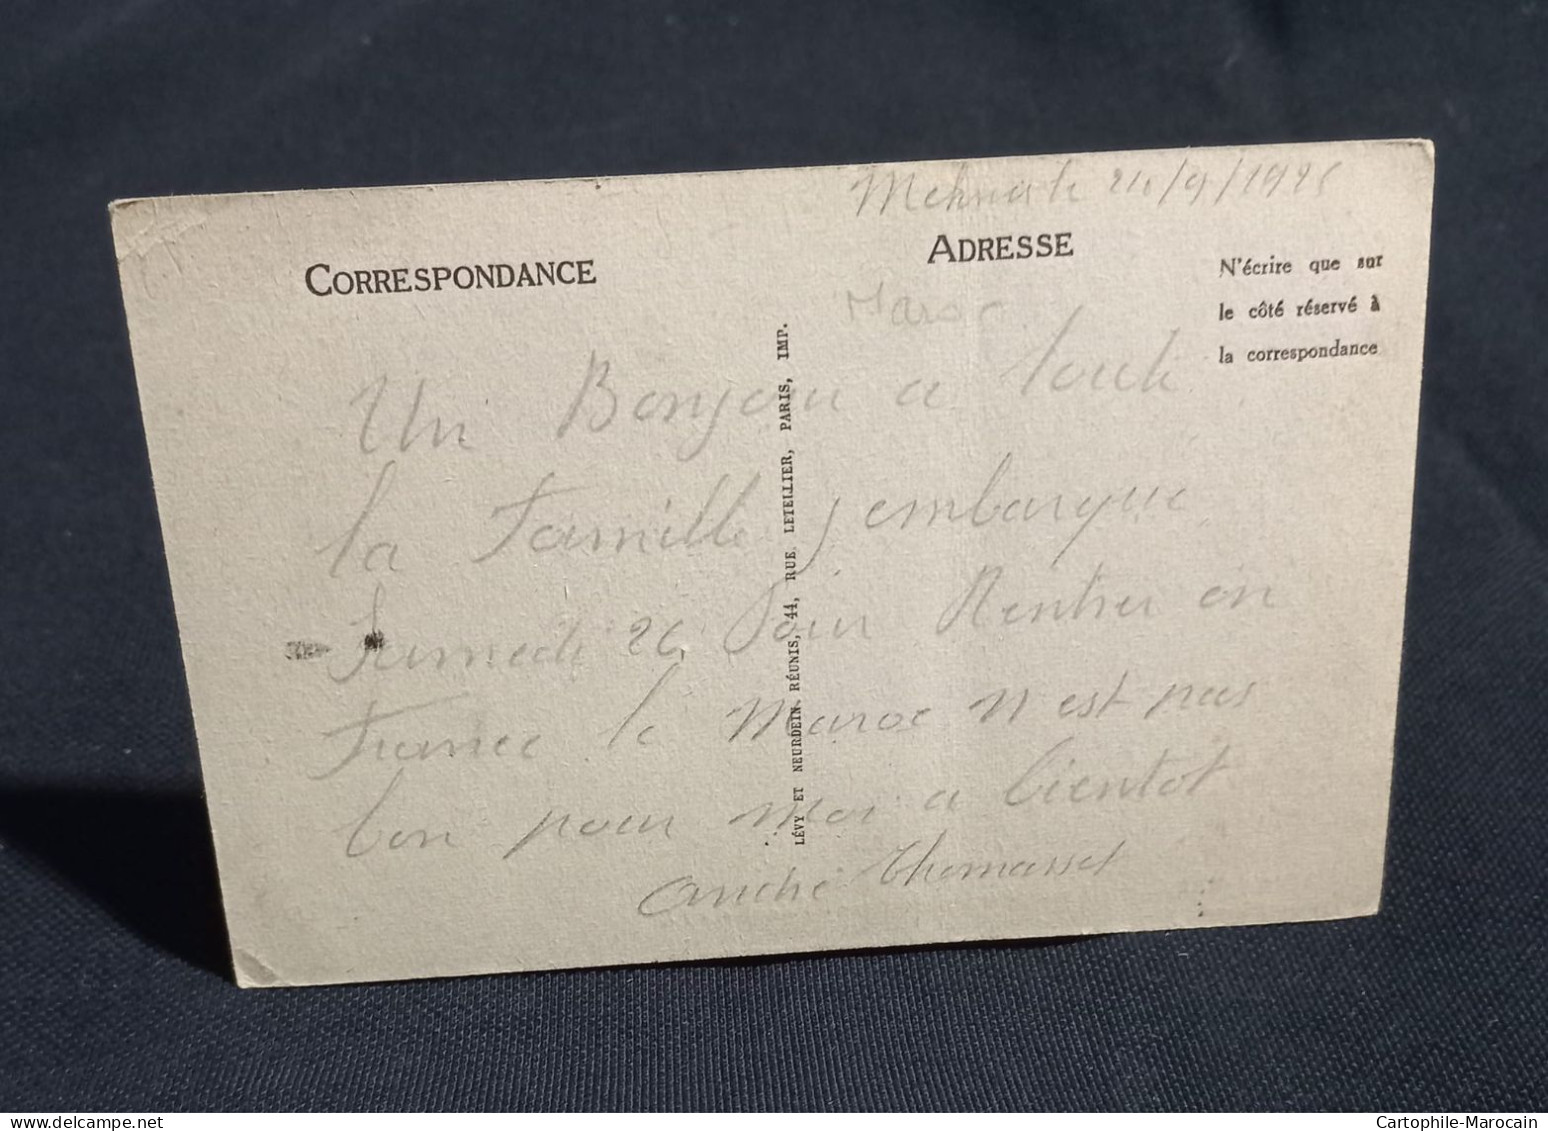 24/9/1925
CORRESPONDANCE
ADRESSE
N'écrire que sur
le côté réservé à
la correspondance
Maroc
Un Bonjour a toute
la Famille j embarque
Samedi 26 Pour Rentrer en
France le Maroc n est pas
bon pour moi a bientot
André Thomasset
LÉVY ET NEURDEIN RÉUNIS, 44, RUE LETELLIER, PARIS, IMP.
Cartophile-Marocain